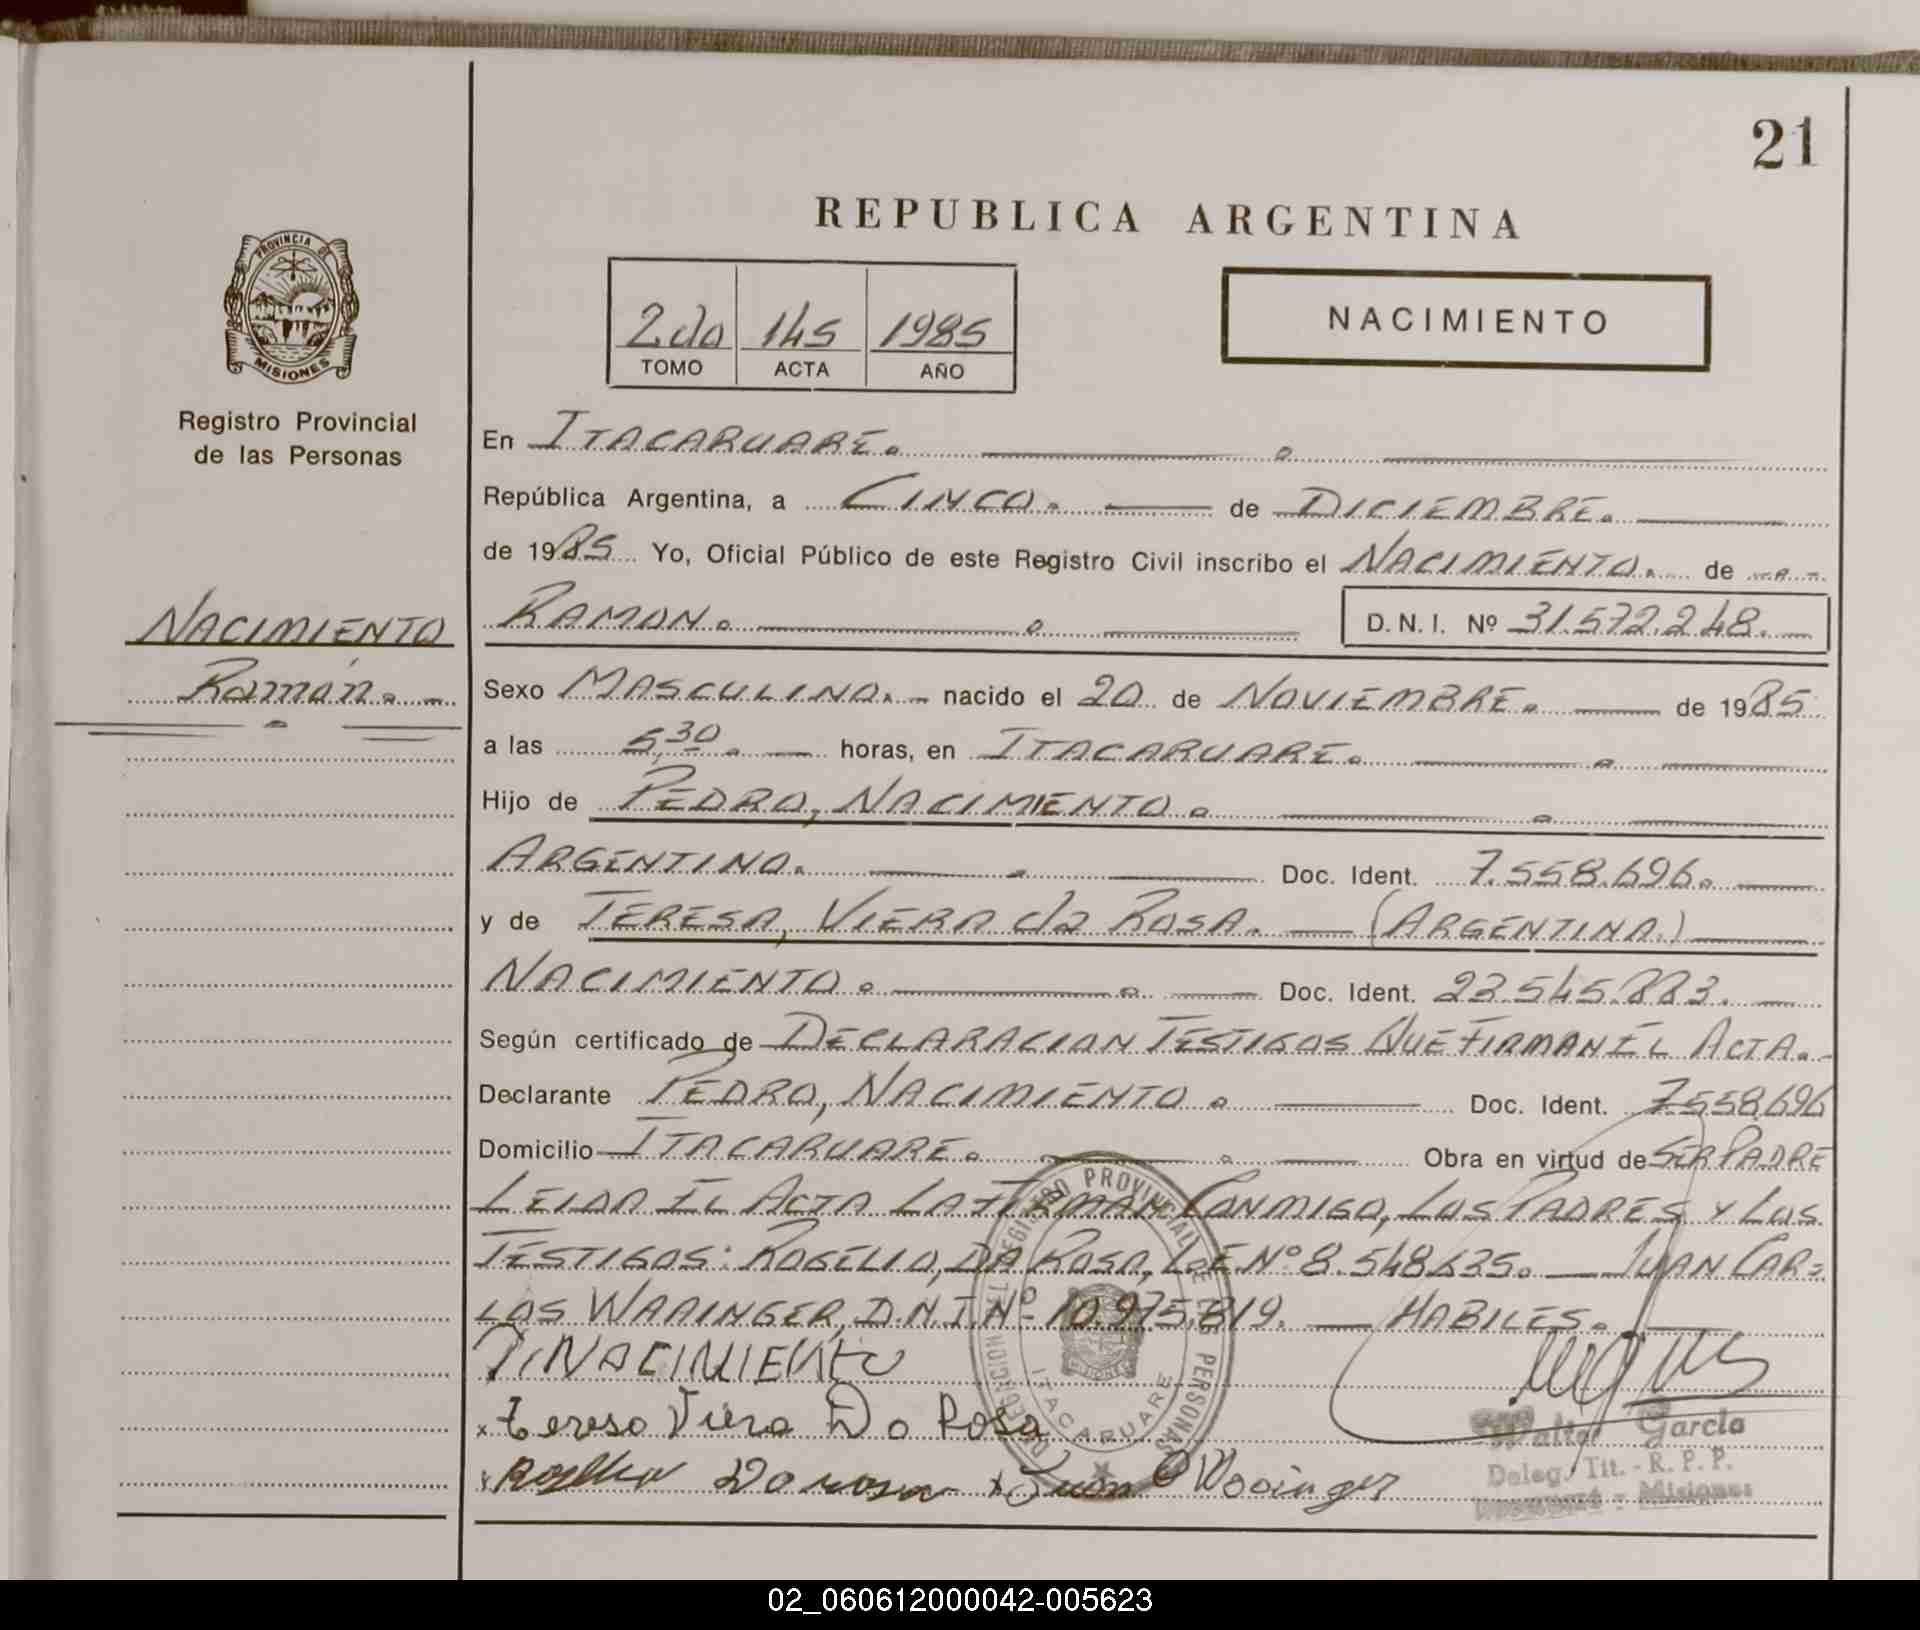 21
REPUBLICA ARGENTINA
PROVINCIA DE
MISIONES
Registro Provincial
de las Personas
2do 145 1985
TOMO ACTA AÑO
NACIMIENTO
En ITACARUARE.
República Argentina, a CINCO. de DICIEMBRE.
de 1985 Yo, Oficial Público de este Registro Civil inscribo el NACIMIENTO. de
NACIMIENTO
Ramón.
RAMON. D.N.I. Nº 31.572.248.
Sexo MASCULINO. nacido el 20 de NOVIEMBRE. de 1985
a las 5,30. horas, en ITACARUARE.
Hijo de PEDRO, NACIMIENTO.
ARGENTINO. Doc. Ident. 7.558.696.
y de TERESA, VIERA da ROSA. (ARGENTINA.)
NACIMIENTO. Doc. Ident. 23.545.883.
Según certificado de DECLARACION TESTIGOS QUE FIRMAN EL ACTA.
Declarante PEDRO, NACIMIENTO. Doc. Ident. 7.558.696
Domicilio ITACARUARE. Obra en virtud de SER PADRE
LEIDA EL ACTA LA FIRMAN CONMIGO, LOS PADRES Y LOS
TESTIGOS: ROGELIO, DA ROSA, L.E Nº 8.548.635. JUAN CAR=
LOS WAAINGER, D.N.I. Nº 10.975.819. HABILES.
NACIMIENTO
x Tereso Viera Da Rosa
x Da rosa x Juan C Waainger
DELEGACION DEL REGISTRO PROVINCIAL DE LAS PERSONAS
ITACARUARE
Walter García
Deleg. Tit. - R. P. P.
- Misiones
02_060612000042-005623